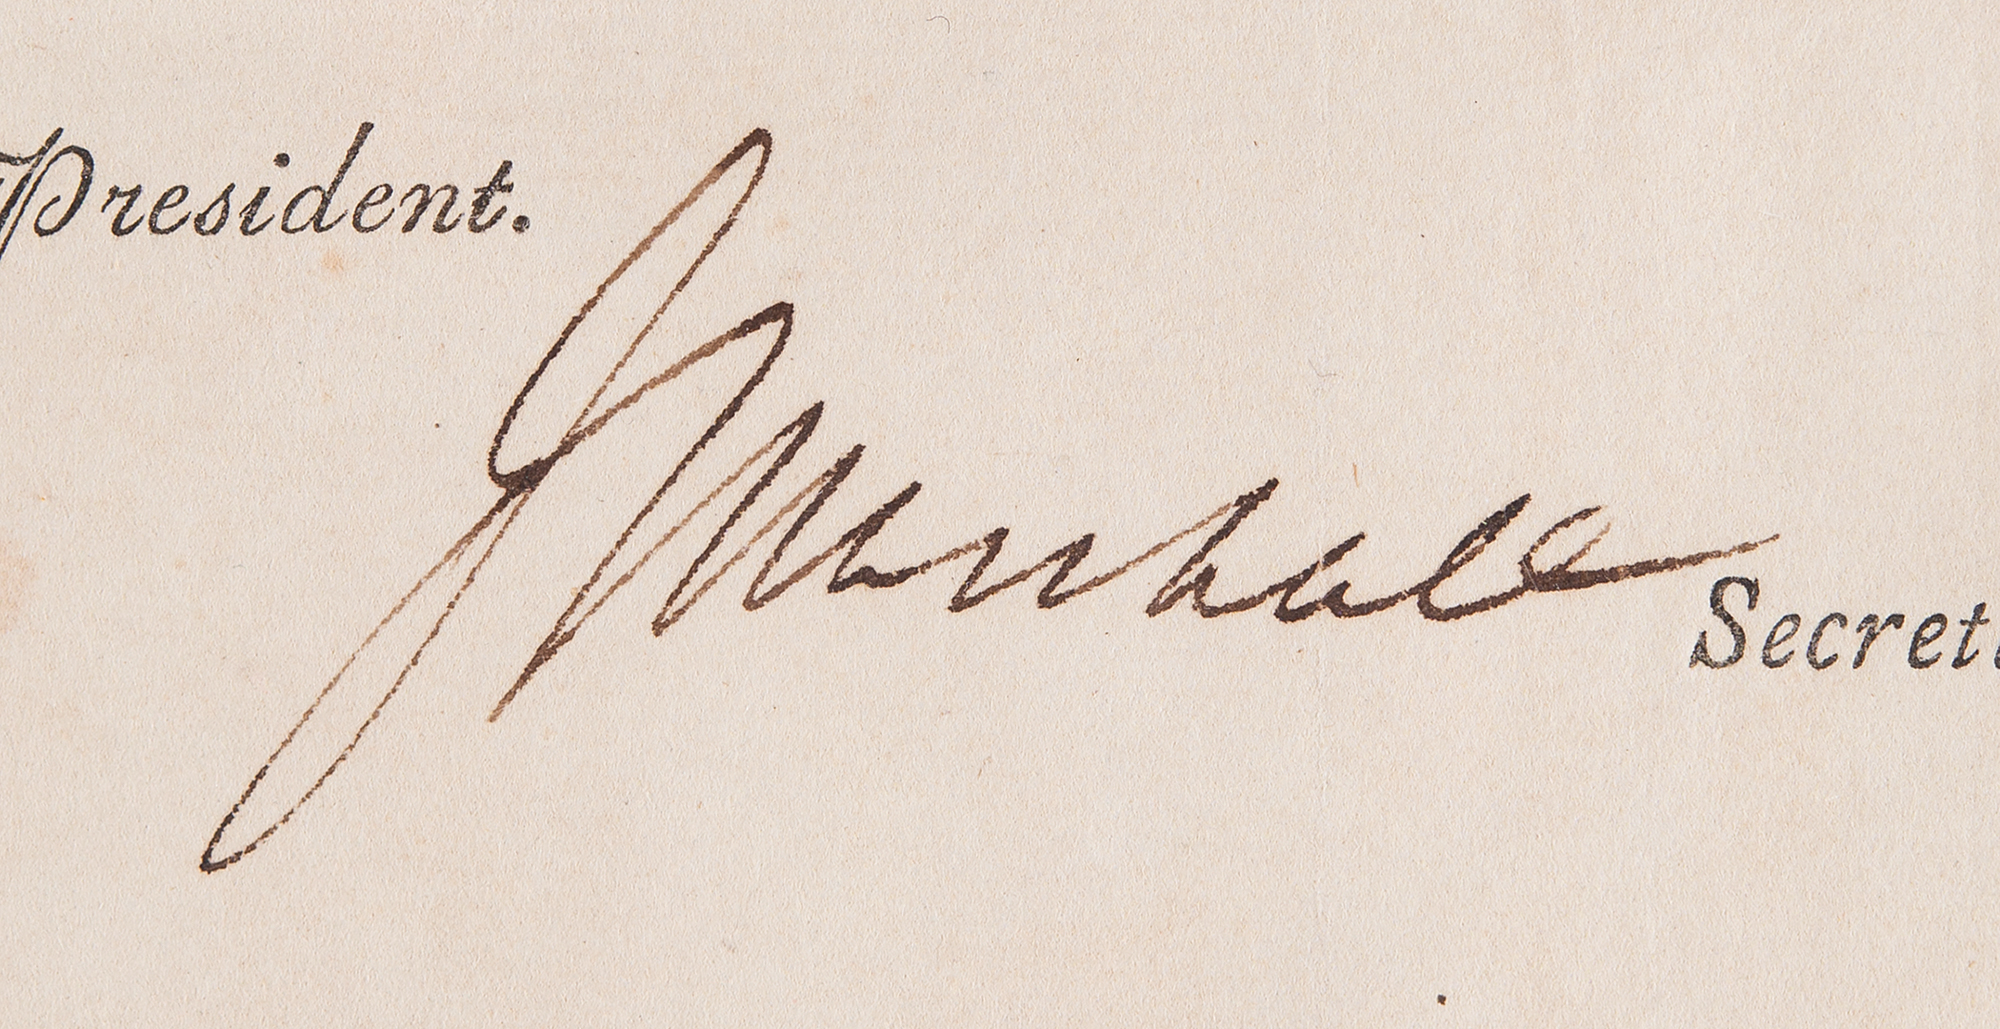 President.
J Marshall
Secret